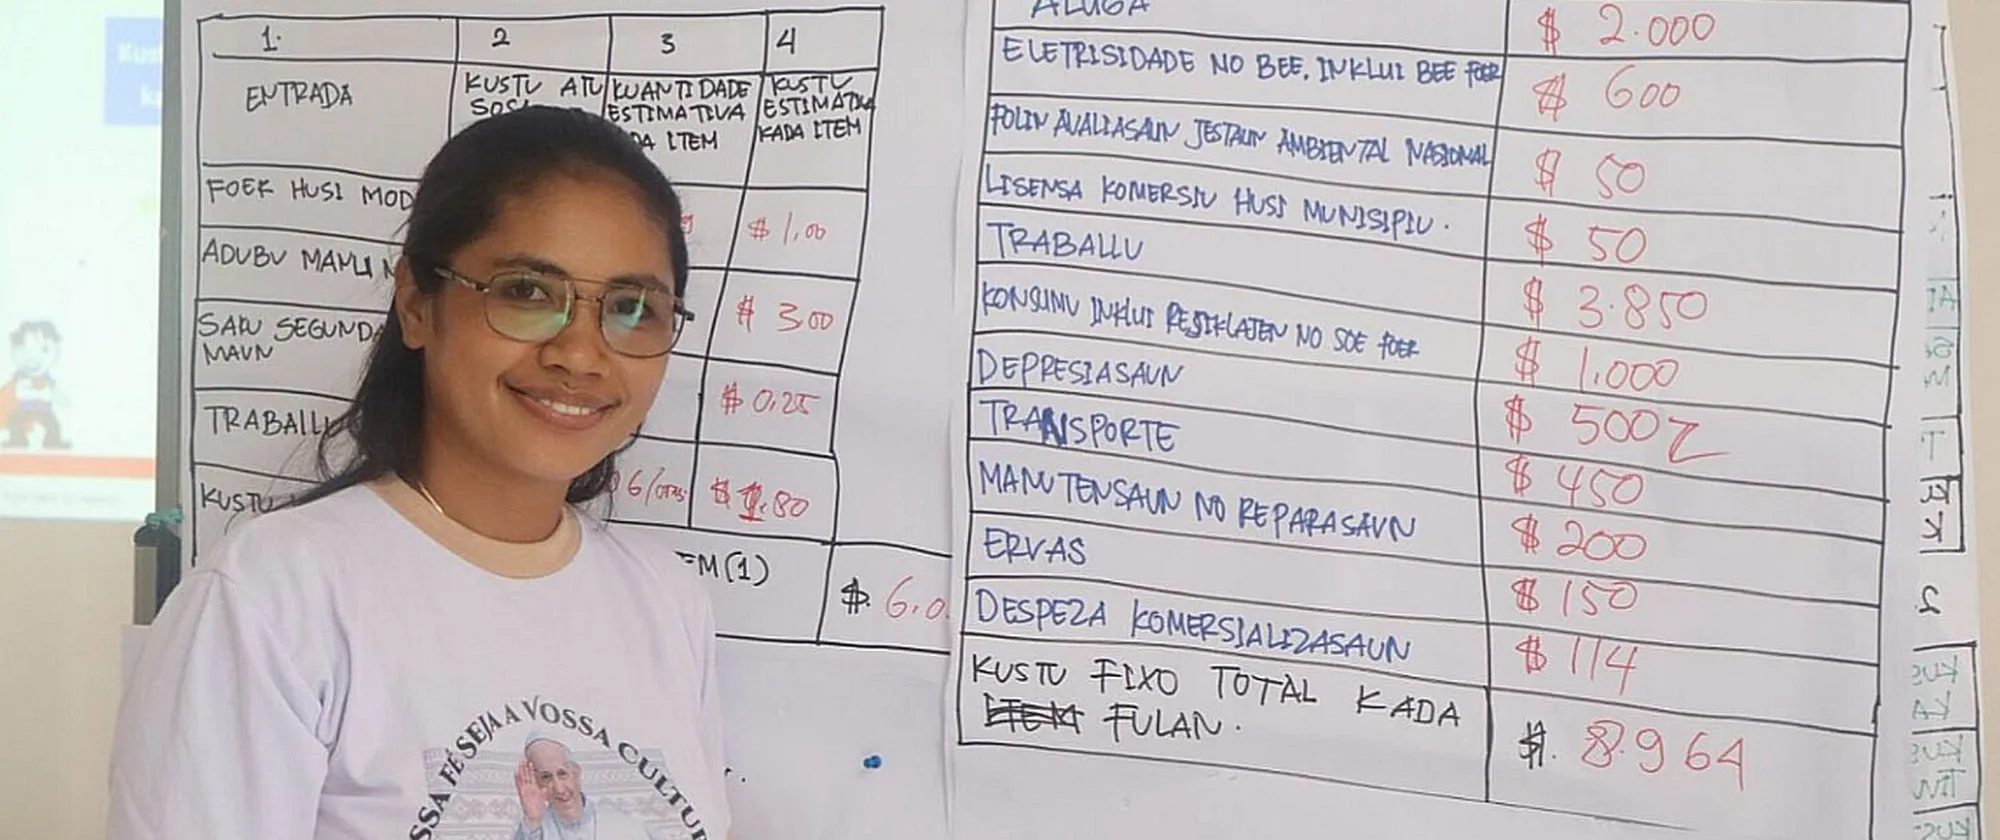 1. 2 3 4
ENTRADA
KUSTU ATU
SOSA
KUANTIDADE
ESTIMATIVA
DA ITEM
KUSTU
ESTIMATIVA
KADA ITEM
FOER HUSI MOD
$ 1,00
ADUBU MANU
$ 3.00
SAKU SEGUNDA
MAUN
$ 0,25
TRABALLU
6/oras $ 1.80
KUSTU
EM (1) $. 6.0
ALUGA $ 2.000
ELETRISIDADE NO BEE, INKLUI BEE FOER $ 600
FOLIN AVALIASAUN JESTAUN AMBIENTAL NASIONAL $ 50
LISENSA KOMERSIU HUSI MUNISIPIU. $ 50
TRABALLU $ 3.850
KONSUMU INKLUI RESIKLAJEN NO SOE FOER $ 1.000
DEPRESIASAUN $ 500
TRANSPORTE $ 450
MANUTENSAUN NO REPARASAUN $ 200
ERVAS $ 150
DESPEZA KOMERSIALIZASAUN $ 114
KUSTU FIXO TOTAL KADA
ITEM FULAN. $. 8.964
SSA FÉ SEJA A VOSSA CULTUR